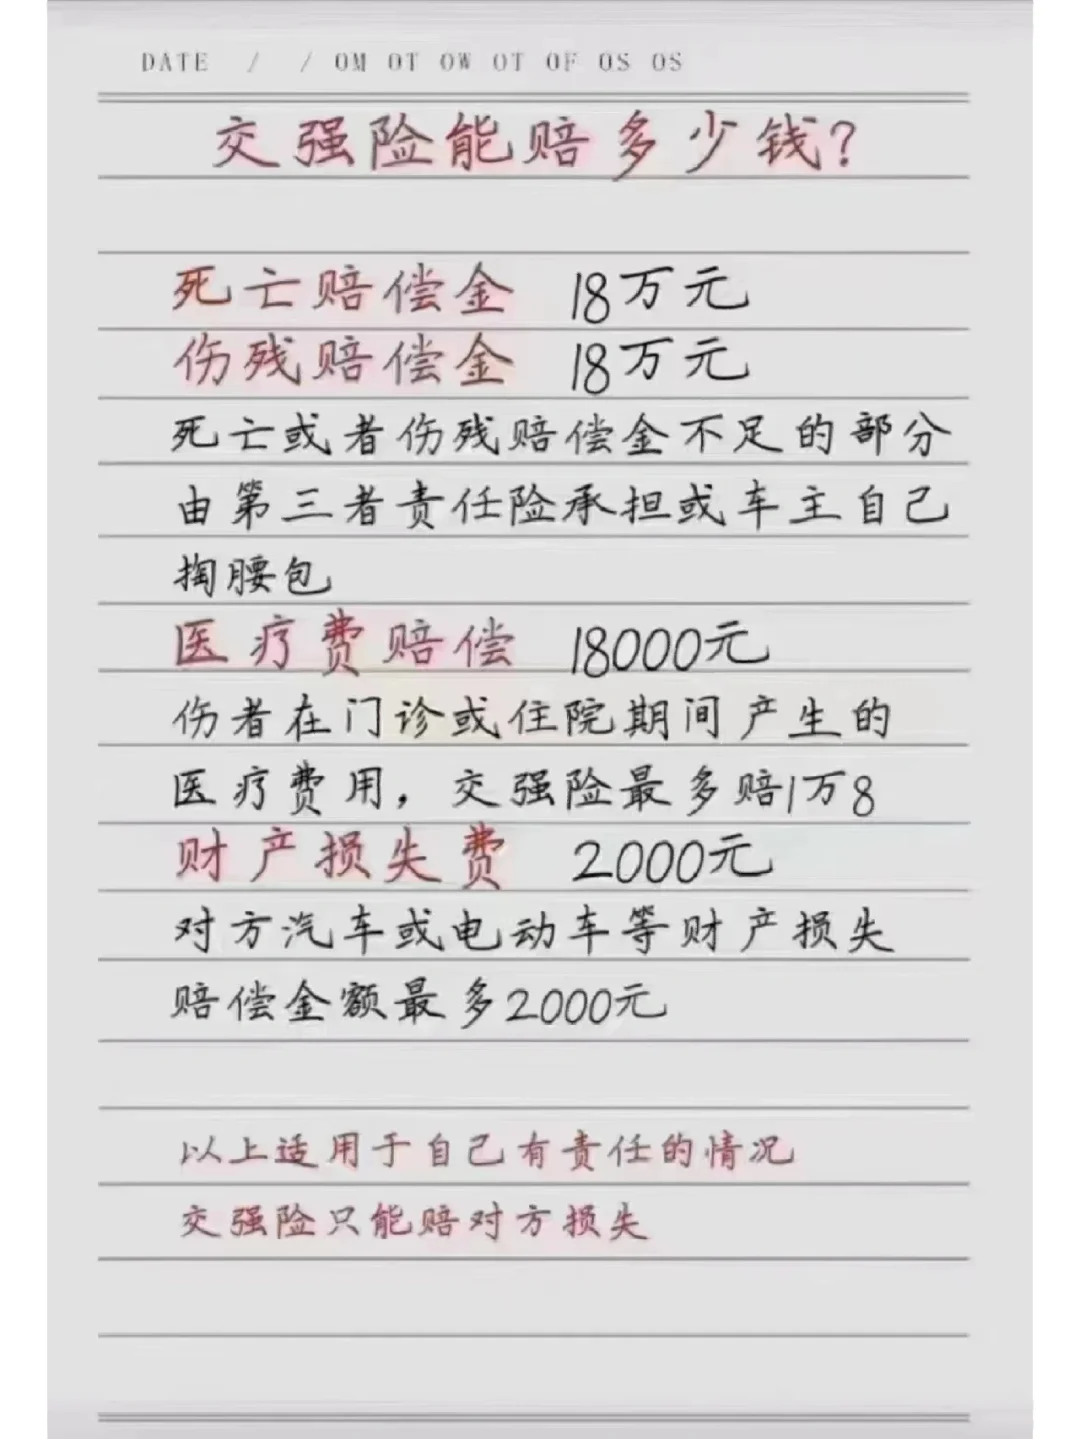 DATE / / OM OT OW OT OF OS OS
交强险能赔多少钱?
死亡赔偿金 18万元
伤残赔偿金 18万元
死亡或者伤残赔偿金不足的部分
由第三者责任险承担或车主自己
掏腰包
医疗费赔偿 18000元
伤者在门诊或住院期间产生的
医疗费用，交强险最多赔1万8
财产损失费 2000元
对方汽车或电动车等财产损失
赔偿金额最多2000元
以上适用于自己有责任的情况
交强险只能赔对方损失